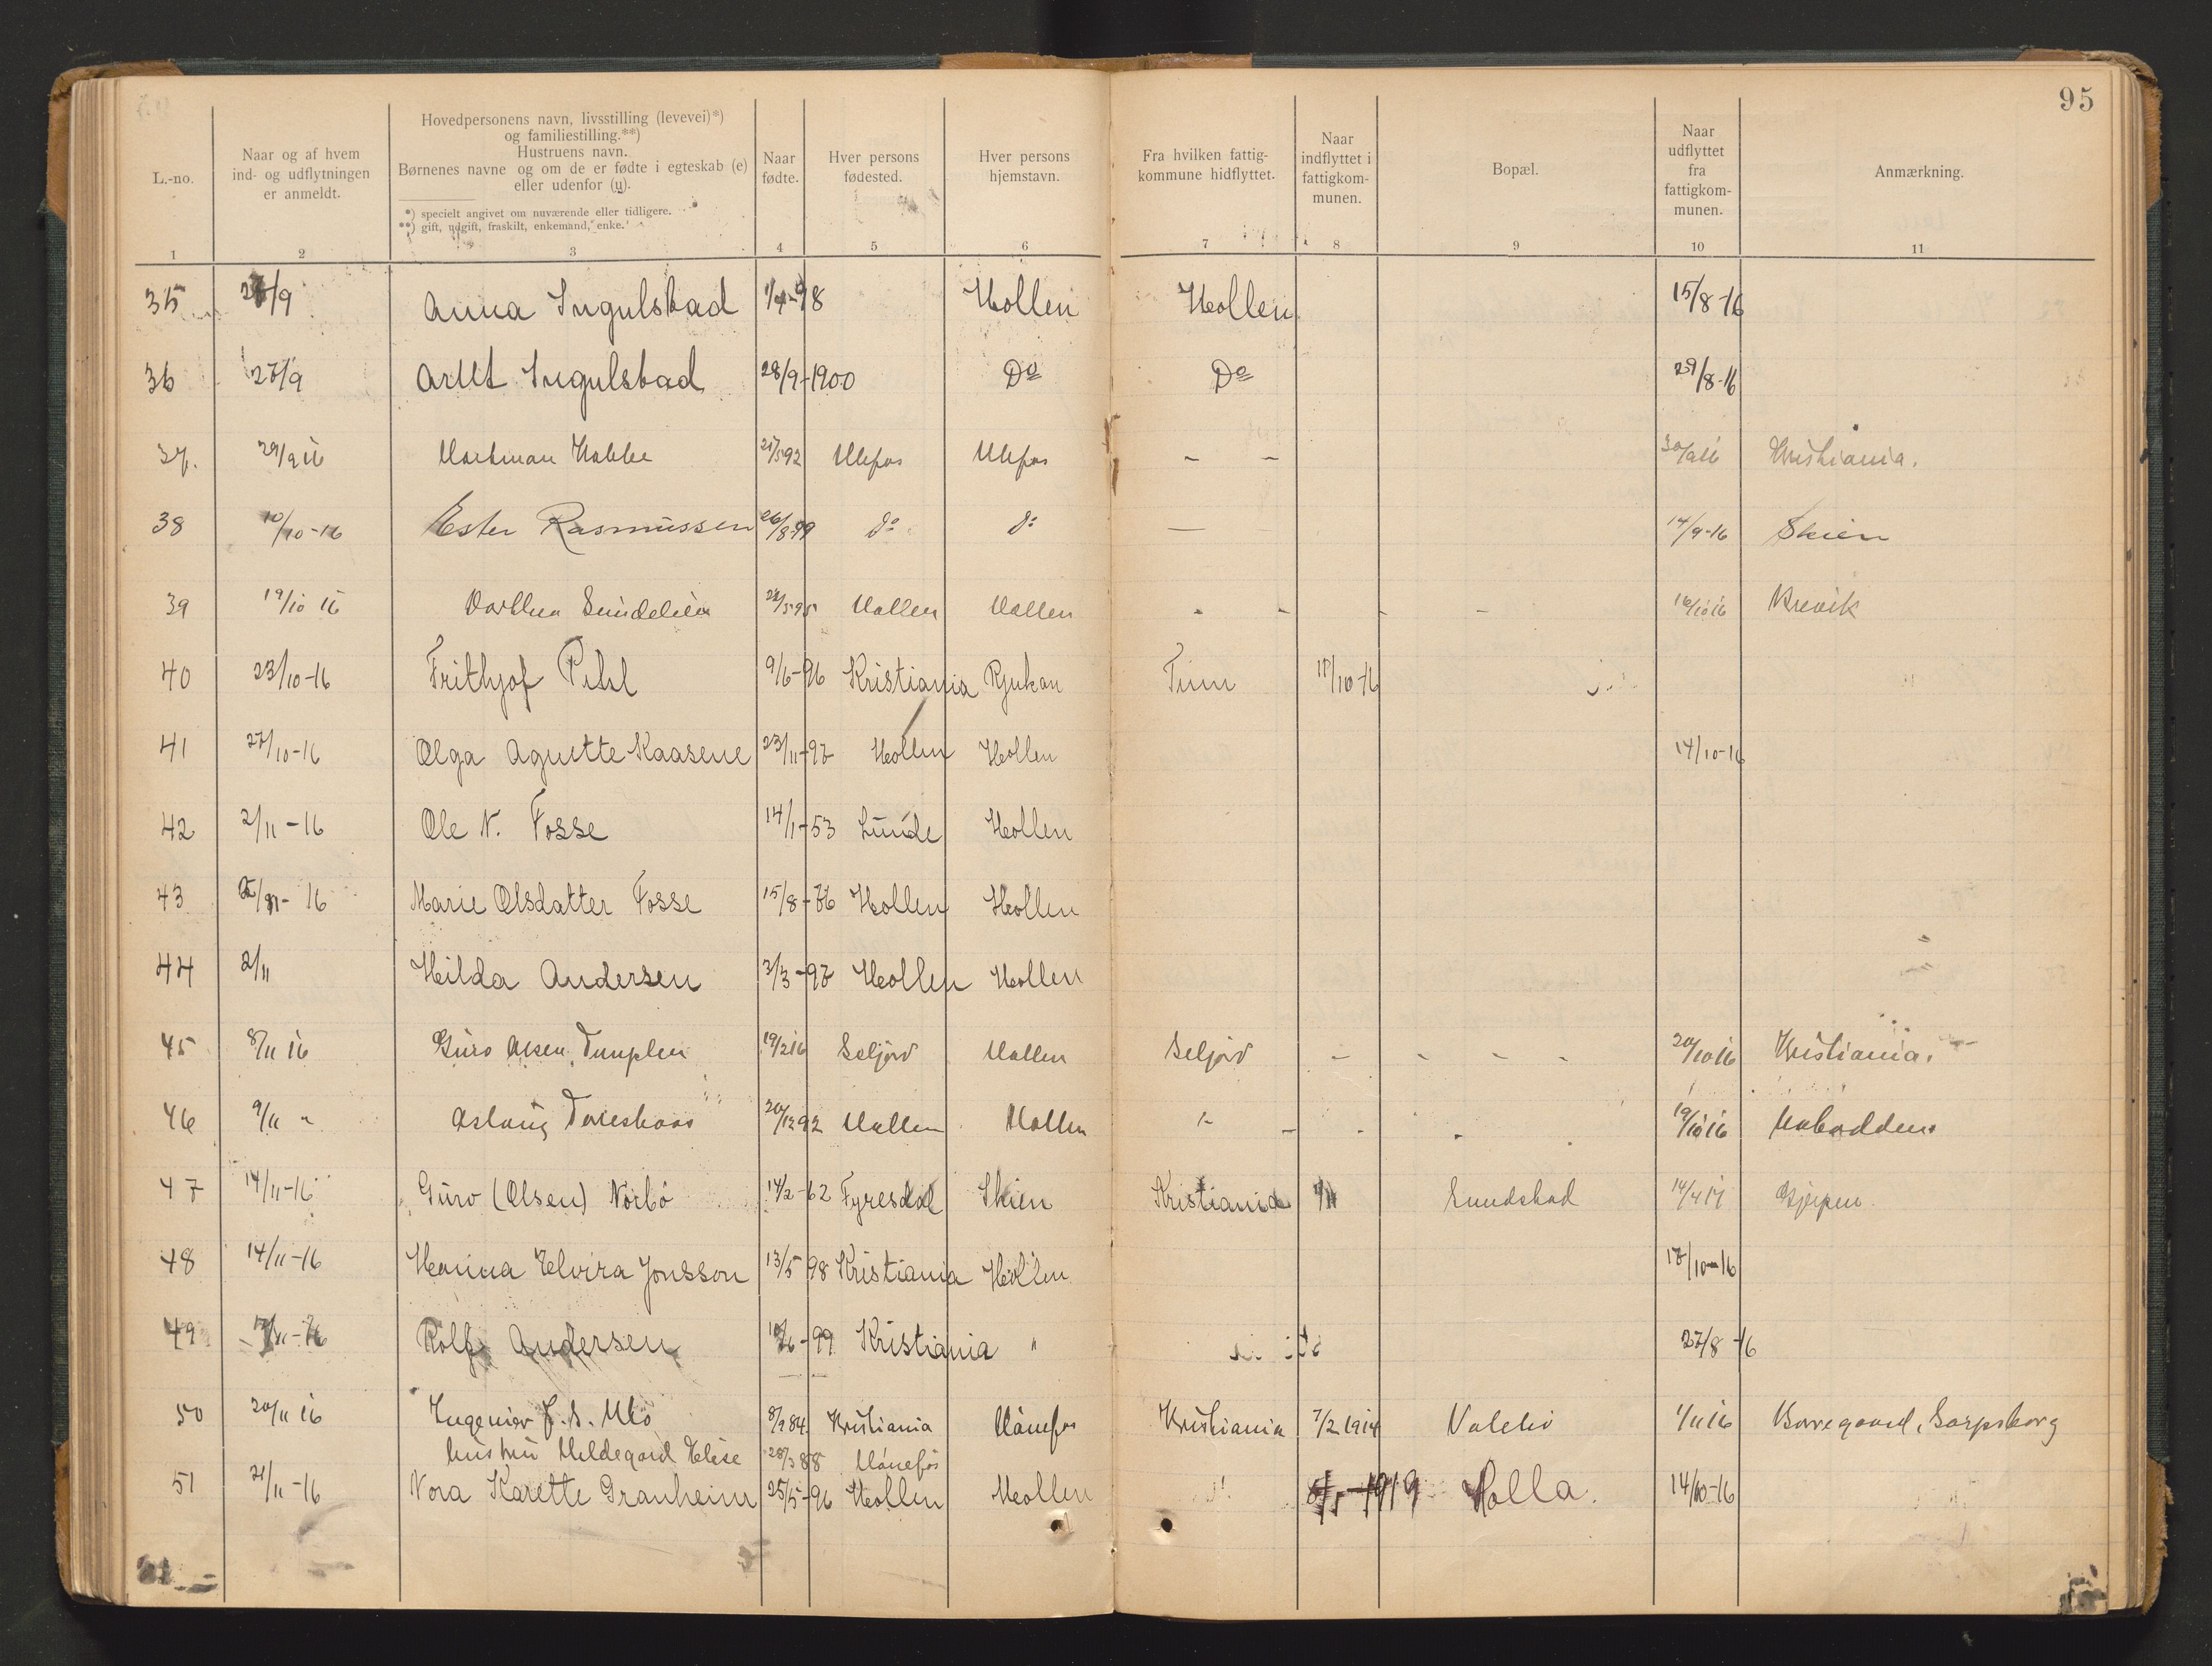 95
L.-no.
Naar og af hvem
ind- og udflytningen
er anmeldt.
Hovedpersonens navn, livsstilling (levevei)*)
og familiestilling.**)
Hustruens navn.
Børnenes navne og om de er fødte i egteskab (e)
eller udenfor (u).
*) specielt angivet om nuværende eller tidligere.
**) gift, ugift, fraskilt, enkemand, enke.
Naar
fødte.
Hver persons
fødested.
Hver persons
hjemstavn.
Fra hvilken fattig-
kommune hidflyttet.
Naar
indflyttet i
fattigkom-
munen.
Bopæl.
Naar
udflyttet
fra
fattigkom-
munen.
Anmærkning.
1 2 3 4 5 6 7 8 9 10 11
35 /9 Anna Ingulstad 1/4-98 Hollen Hollen 15/8-16
36 27/9 Arilt Ingulstad 28/9-1900 Do Do 29/8-16
37. 29/9 16 Ulefos Ulefos - - 30/9 16 Kristiania.
38 10/10-16 Ester Rasmussen 26/8 99 do do — 14/9-16 Skien
39 19/10 16 Dorthea Sundelien 5 95 Hollen Hollen - - - - 16/10 16 Brevik
40 23/10-16 Frithjof Pihl 9/6-96 Kristiania Rjukan Tinn 18/10-16
41 27/10-16 Olga Agnette Kaasene 23/11-97 Hollen Hollen 14/10-16
42 2/11-16 Ole N. Fosse 14/1-53 Lunde Hollen
43 2/11-16 Marie Olsdatter Fosse 15/8- Hollen Hollen
44 2/11 Hilda Andersen 2/3-97 Hollen Hollen
45 8/11 16 Guro Olsen 19/2 16 Seljord Hollen Seljord - - - - 20/10 16 Kristiania.
46 9/11 " Aslaug 20/12 92 Hollen Hollen - - - - 19/10 16 Notodden
47 14/11-16 Guro (Olsen) Norbö 14/2-62 Fyresdal Skien Kristiania Sundstad 14/4 17 Gjerpen
48 14/11-16 Hanna Elvira Jonsson 13/5 98 Kristiania Hollen 17/10-16
49 /11-16 Rolf Andersen -99 Kristiania " 27/8-16
50 20/11 16 Ingeniør J. S. 8/9 84 Kristiania Hønefos Kristiania 7/2 1914 Valebø 1/11 16 Borregaard, Sarpsborg
hustru Hildegard Elise 28/3 88 Hønefos
51 21/11-16 Nora Karette Granheim 25/5-96 Hollen Hollen 1919 Holla. 14/10-16